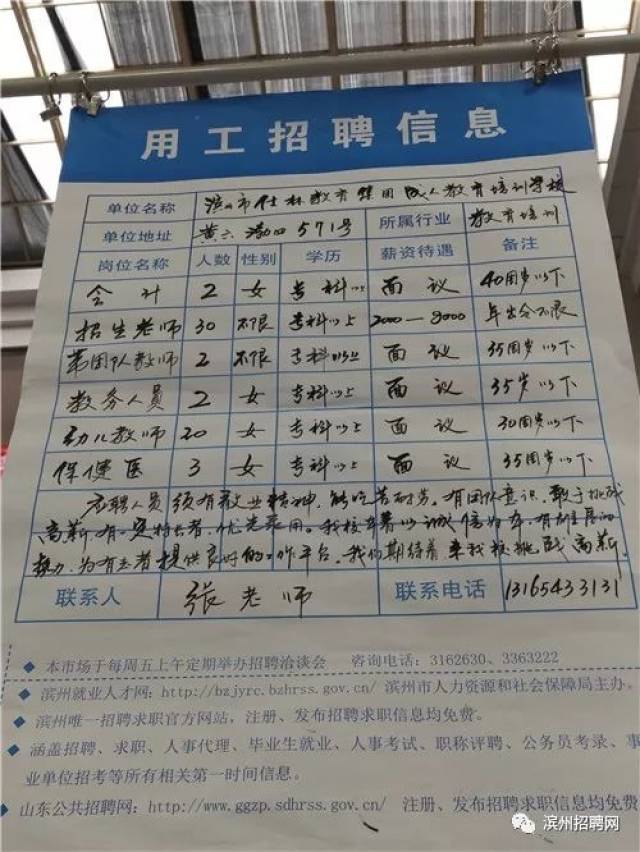 用工招聘信息
单位名称 滨州市仕林教育集团成人教育培训学校
单位地址 黄六渤四571号 所属行业 教育培训
岗位名称 人数 性别 学历 薪资待遇 备注
会计 2 女 专科以上 面议 40周岁以下
招生老师 30 不限 专科以上 2000—8000 年龄不限
带团队教师 2 不限 专科以上 面议 35周岁以下
教务人员 2 女 专科以上 面议 35岁以下
幼儿教师 20 女 专科以上 面议 30周岁以下
保健医 3 女 专科以上 面议 35周岁以下
应聘人员须有敬业精神,能吃苦耐劳。有团队意识、敢于挑战
高薪。有一定特长者,优先录用。我校本着以诚信为本,有雄厚的
势力,为有志者提供良好的工作平台。我们期待着来我校挑战高薪。
联系人 张老师 联系电话 13165433131
◆ 本市场于每周五上午定期举办招聘洽谈会 咨询电话:3162630、3363222
◆ 滨州就业人才网:http://bzjyrc.bzhrss.gov.cn/ 滨州市人力资源和社会保障局主办。
◆ 滨州唯一招聘求职官方网站,注册、发布招聘求职信息均免费。
◆ 涵盖招聘、求职、人事代理、毕业生就业、人事考试、职称评聘、公务员考录、事
业单位招考等所有相关第一时间信息。
◆ 山东公共招聘网:http://www.ggzp.sdhrss.gov.cn/ 注册、发布招聘求职信息均免费
滨州招聘网